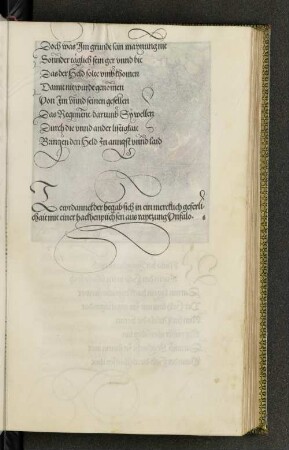 Doch was Im grunde sein maynung nit
Sonder täglich sein ger vnnd bit
Das der Held solte vmbkhomen
Damit nit würde genomen
Von Im vnnd seinen gesellen
Das Regiment darumb Sy wellen
Durch die vnnd ander listigkait
Bringen den Held In anngst vnnd laid
Tewrdannckh der begab sich in ein mercklich geferli-
chait mit einer hacknpüchsen aus anweisung Vnfalo·